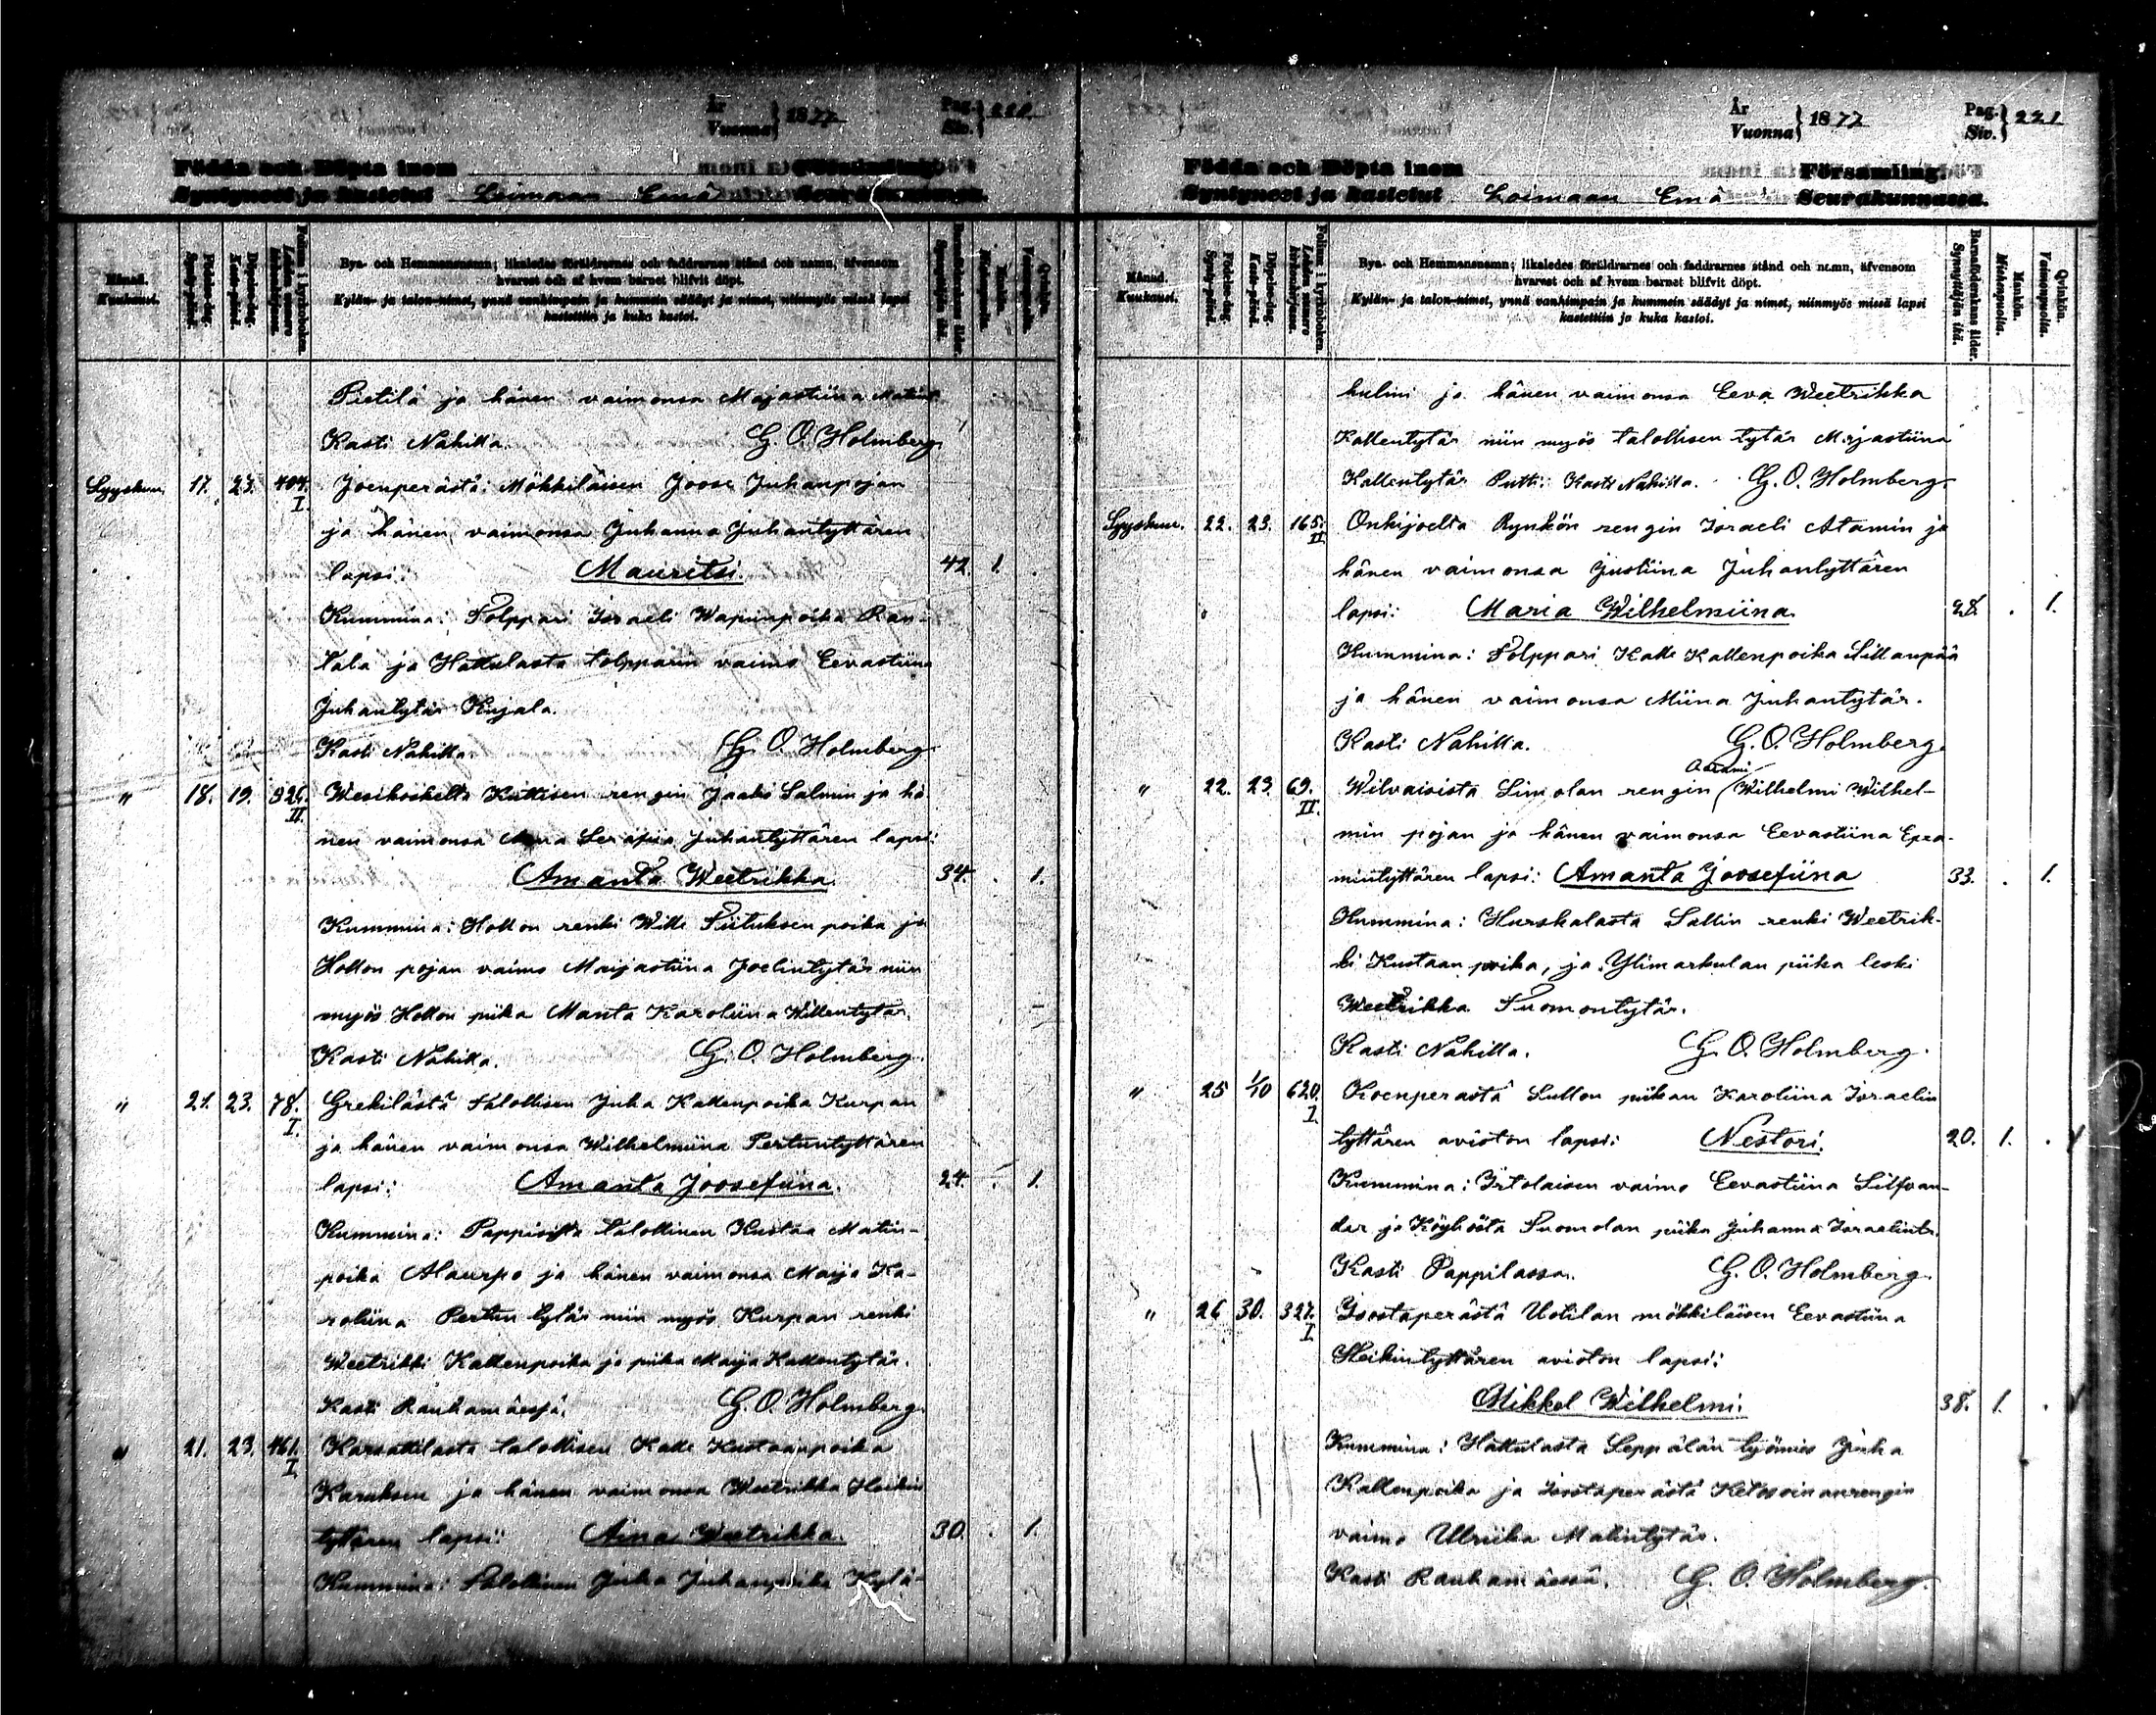 År
Vuonna } 1877
Pag.
Siv. } 220
Födda och Döpta inom Församling.
Syntyneet ja kastetut Loimaan Emä Seurakunnassa.
Månad.
Kuukausi.
Födelse-dag.
Synty-päivä.
Döpelse-dag.
Kaste-päivä.
Folium i kyrkoboken.
Lehden numero kirkonkirjassa.
Bya- och Hemmansnamn; likaledes föräldrarnes och faddrarnes stånd och namn, äfvensom
hvarest och af hvem barnet blifvit döpt.
Kylän- ja talon-nimet, ynnä vanhimpain ja kummein säädyt ja nimet, niinmyös missä lapsi
kastettiin ja kuka kastoi.
Barnaföderskans ålder.
Synnyttäjän ikä.
Mankön.
Miehenpuolia.
Qvinkön.
Vaimonpuolia.
Pietilä ja hänen vaimonsa Majastiina
Kasti Nahilla. G. O. Holmberg.
Syyskuu. 17. 23. 404. I. Joenperästä: Mökkiläisen Joose Juhanpojan
ja hänen vaimonsa Juhanna Juhantyttären
lapsi: Mauritsi. 42. 1.
Kummina: Tolppari Israeli Wapunpoika Ran-
tala ja Hattulasta tolpparin vaimo Eevastiina
Juhantytär Kujala.
Kasti Nahilla. G. O. Holmberg.
" 18. 19. 326. II. Wesikoskelta Kuttisen rengin Jaako Salmin ja hä
nen vaimonsa Serafia Juhantyttären lapsi:
Amanta Weetrikka. 34. . 1.
Kummina: Hollon renki Wille Tiituksen poika ja
Hollon pojan vaimo Maijastiina Joelintytär niin
myös Hollon piika Manta Karoliina Willentytär.
Kasti Nahilla. G. O. Holmberg.
" 21. 23. 78. I. Grekilästä talollisen Juha Kallenpoika Kurpan
ja hänen vaimonsa Wilhelmiina Pertuntyttären
lapsi: Amanta Joosefiina. 24. . 1.
Kummina: Pappisista talollinen Kustaa Matin-
poika Alaurpo ja hänen vaimonsa Maija Ka-
roliina Pertun tytär niin myös Kurpan renki
Weetrikki Kallenpoika ja piika Maija Kallentytär.
Kasti Rauhamäessä. G. O. Holmberg.
" 21. 23. 461. I. talollisen Kalle Kustaanpoika
Karuksen ja hänen vaimonsa Weetrikka Heikin
tytären lapsi: Aina Weetrikka. 30. . 1.
Kummina: Talollinen Juha Juhanpoika Kylä-
År
Vuonna } 1877
Pag.
Siv. } 221
Födda och Döpta inom Församling.
Syntyneet ja kastetut Loimaan Emä Seurakunnassa.
Månad.
Kuukausi.
Födelse-dag.
Synty-päivä.
Döpelse-dag.
Kaste-päivä.
Folium i kyrkoboken.
Lehden numero kirkonkirjassa.
Bya- och Hemmansnamn; likaledes föräldrarnes och faddrarnes stånd och namn, äfvensom
hvarest och af hvem barnet blifvit döpt.
Kylän- ja talon-nimet, ynnä vanhimpain ja kummein säädyt ja nimet, niinmyös missä lapsi
kastettiin ja kuka kastoi.
Barnaföderskans ålder.
Synnyttäjän ikä.
Mankön.
Miehenpuolia.
Qvinkön.
Vaimonpuolia.
hulmi ja hänen vaimonsa Eeva Weetrikka
Kallentytär niin myös talollisen tytär Majastiina
Kallentytär Putti: Kasti Nahilla. G. O. Holmberg.
Syyskuu. 22. 23. 165. II Onkijoelta Rynkön rengin Israeli Atamin ja
hänen vaimonsa Justiina Juhantyttären
lapsi: Maria Wilhelmiina. 28. . 1.
Kummina: Tolppari Kalle Kallenpoika Sillanpää
ja hänen vaimonsa Miina Juhantytär.
Kasti Nahilla. G. O. Holmberg.
Aatami
" 22. 23. 69. II. Wilvaisista Simolan rengin Wilhelmi Wilhel-
min pojan ja hänen vaimonsa Eevastiina Epra-
mintyttären lapsi: Amanta Joosefiina 33. . 1.
Kummina: Hurskalasta Sallin renki Weetrik-
ki Kustaan poika, ja Ylimarkulan piika leski
Weetrikka Tuomontytär.
Kasti Nahilla. G. O. Holmberg.
" 25 1/10 620. I Koenperästä Lullon piikan Karoliina Israelin
tyttären avioton lapsi: Nestori. 20. 1. .
Kummina: Irtolaisen vaimo Eevastiina Silfvan-
der ja Köyhöstä Tuomolan piika Juhanna Israelintr.
Kasti Pappilassa. G. O. Holmberg.
" 26 30. 327. I Isostaperästä Uotilan mökkiläisen Eevastiina
Heikintyttären avioton lapsi:
Mikkel Wilhelmi. 38. 1. .
Kummina: Hattulasta Seppälän työmies Juha
Kallenpoika ja Isostaperästä rengin
vaimo Ulriika Matintytär.
Kasti Rauhamäessä. G. O. Holmberg.